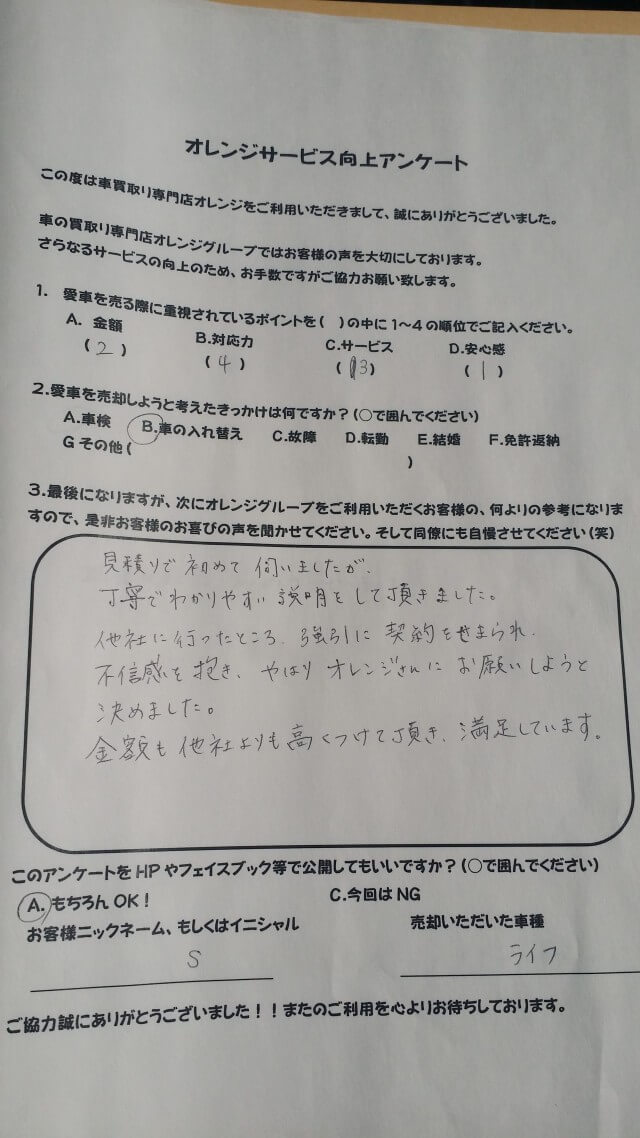 オレンジサービス向上アンケート
この度は車買取り専門店オレンジをご利用いただきまして、誠にありがとうございました。
車の買取り専門店オレンジグループではお客様の声を大切にしております。
さらなるサービスの向上のため、お手数ですがご協力お願い致します。
1. 愛車を売る際に重視されているポイントを( )の中に1～4の順位でご記入ください。
A. 金額 B.対応力 C.サービス D.安心感
(2) (4) (3) (1)
2.愛車を売却しようと考えたきっかけは何ですか？(○で囲んでください)
A.車検 B.車の入れ替え C.故障 D.転勤 E.結婚 F.免許返納
G その他( )
3.最後になりますが、次にオレンジグループをご利用いただくお客様の、何よりの参考になりま
すので、是非お客様のお喜びの声を聞かせてください。そして同僚にも自慢させてください(笑)
見積りで初めて伺いましたが、
丁寧でわかりやすい説明をして頂きました。
他社に行ったところ、強引に契約をせまられ、
不信感を抱き、やはりオレンジさんにお願いしようと
決めました。
金額も他社よりも高くつけて頂き、満足しています。
このアンケートをHPやフェイスブック等で公開してもいいですか？(○で囲んでください)
A. もちろんOK！ C.今回はNG
お客様ニックネーム、もしくはイニシャル 売却いただいた車種
S ライフ
ご協力誠にありがとうございました！！またのご利用を心よりお待ちしております。